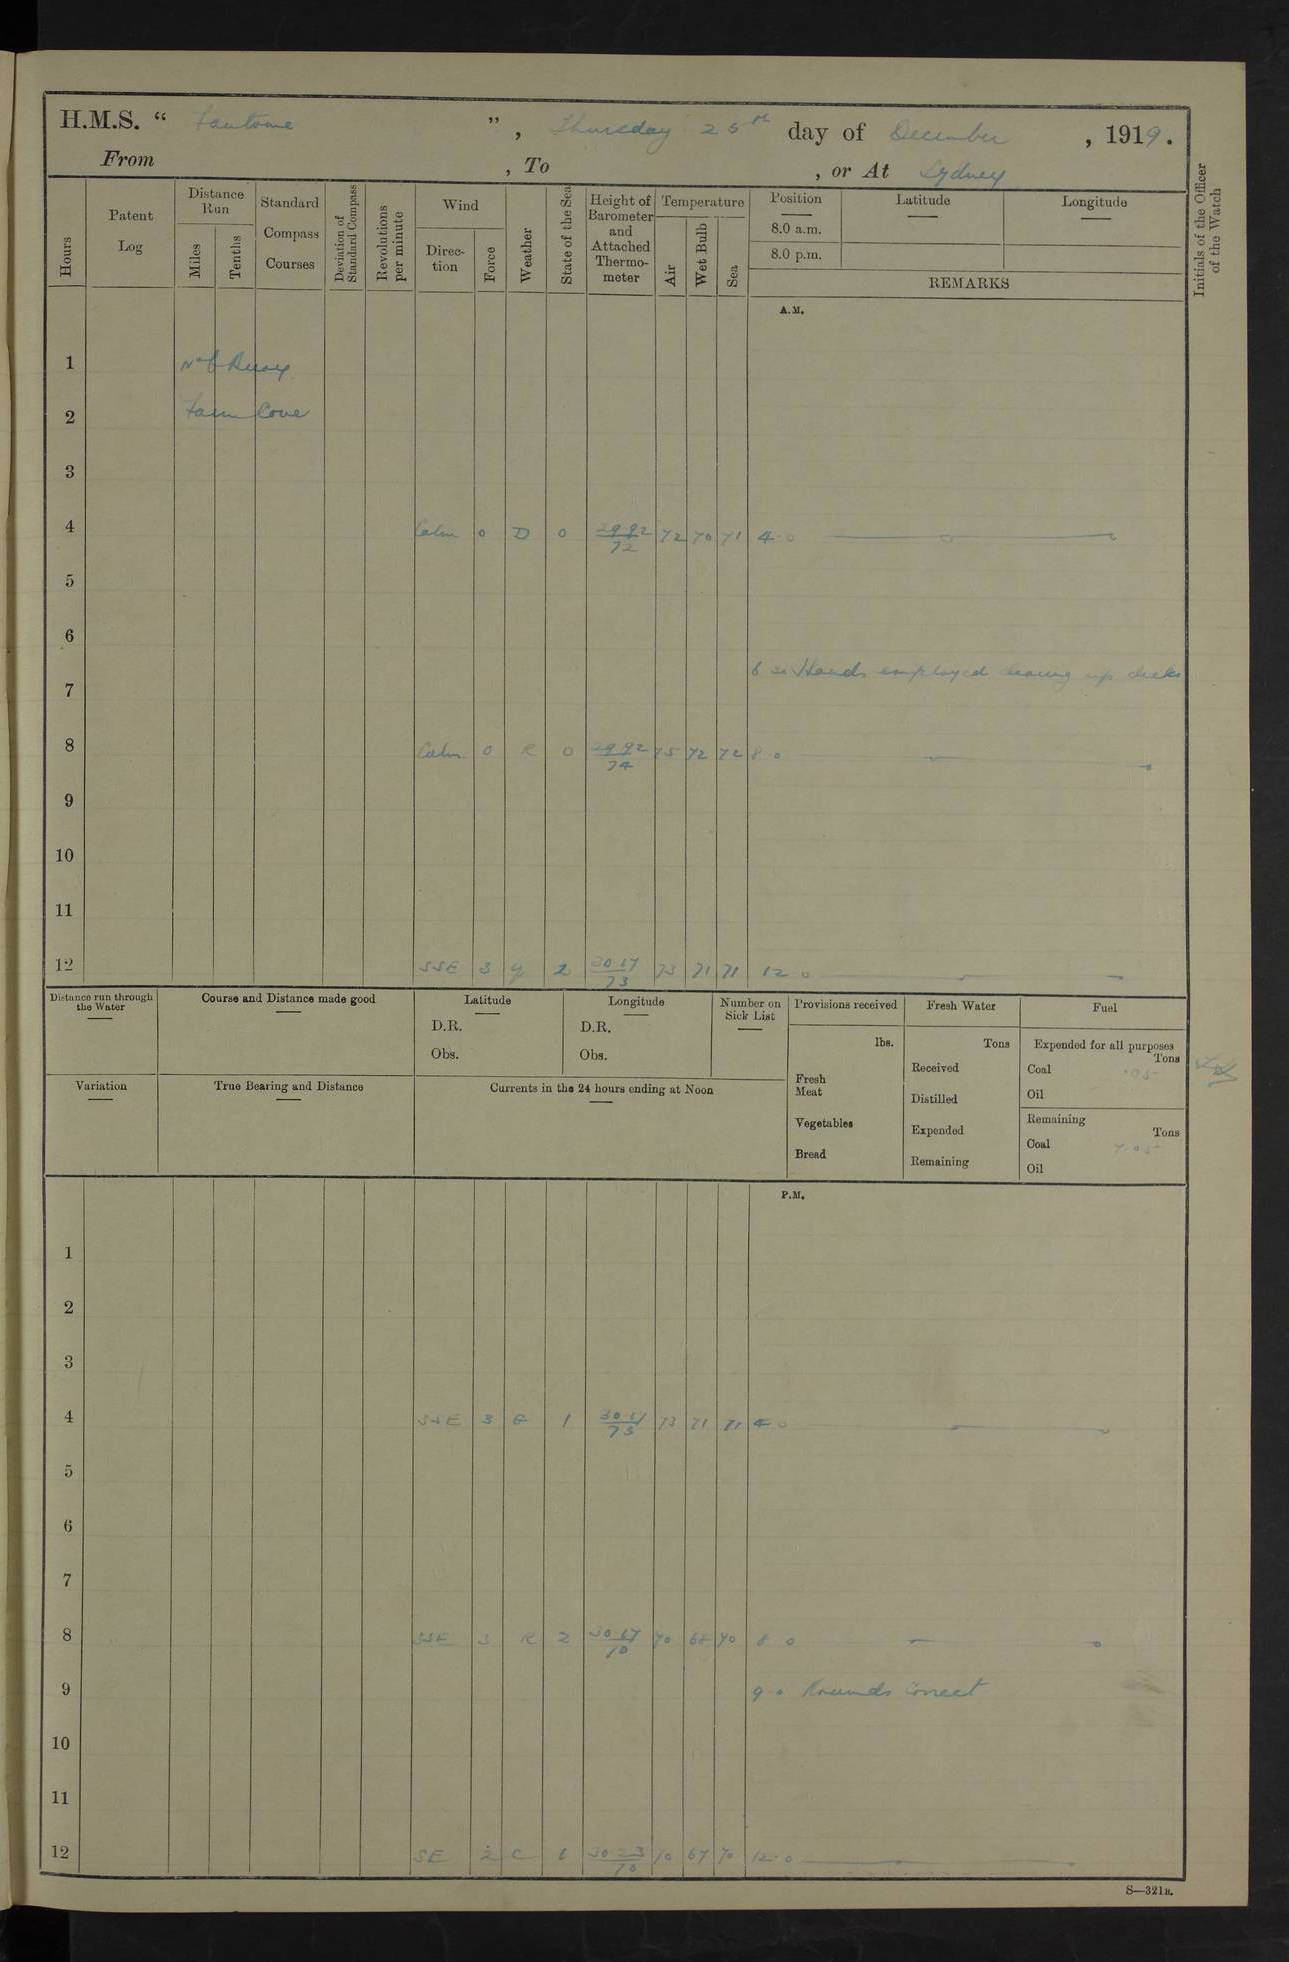 H.M.S. " Fantome " , Thursday 25th day of December , 1919.
From , To , or At Sydney
Hours
Patent Log
Distance Run
Miles
Tenths
Standard Compass Courses
Deviation of Standard Compass
Revolutions per minute
Wind
Direction
Force
Weather
State of the Sea
Height of Barometer and Attached Thermometer
Temperature
Air
Wet Bulb
Sea
Position
8.0 a.m.
8.0 p.m.
Latitude
Longitude
REMARKS
Initials of the Officer of the Watch
A.M.
1 No 6 Buoy
2 Farm Cove
3
4 Calm 0 D 0 29.92/72 72 70 71 4.0
5
6
6 30 Hands employed clearing up decks
7
8 Calm 0 R 0 29.92/74 75 72 72 8.0
9
10
11
12 SSE 3 g 2 30.17/73 73 71 71 12 0
Distance run through the Water
Course and Distance made good
Latitude
D.R.
Obs.
Longitude
D.R.
Obs.
Number on Sick List
Provisions received
lbs.
Fresh Meat
Vegetables
Bread
Fresh Water
Tons
Received
Distilled
Expended
Remaining
Fuel
Expended for all purposes
Tons
Coal .05
Oil
Remaining
Tons
Coal 7.05
Oil
Variation
True Bearing and Distance
Currents in the 24 hours ending at Noon
P.M.
1
2
3
4 SSE 3 G 1 73 73 71 71 4 0
5
6
7
8 SSE 3 R 2 30.17/70 70 68 70 8 0
9 9 0 Rounds Correct
10
11
12 SE 2 C 1 30.23/70 70 67 70 12.0
S—321B.